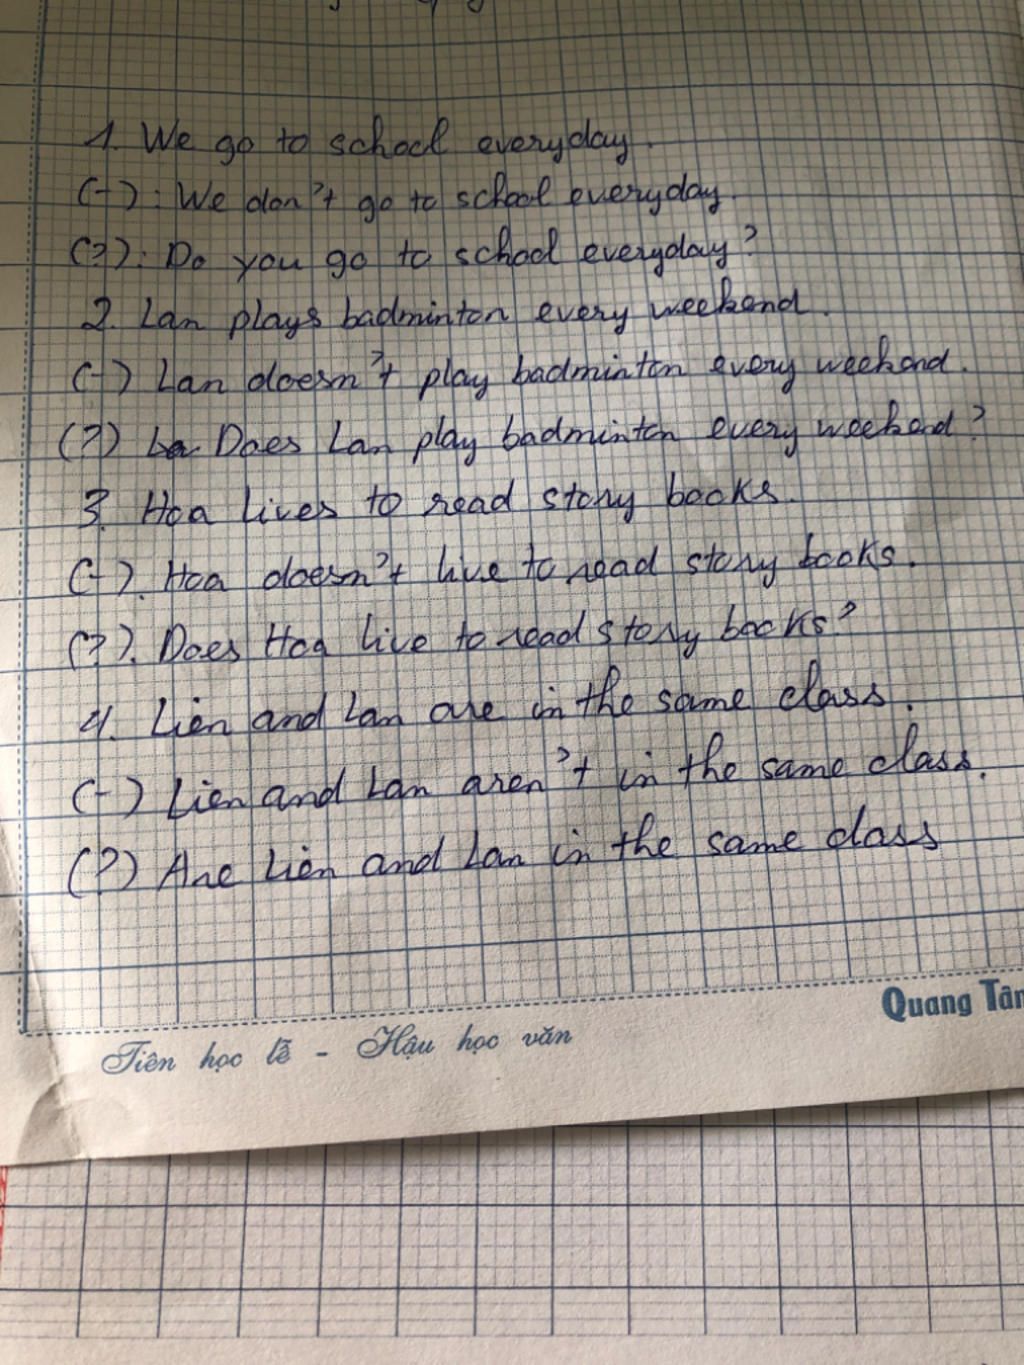 1. We go to school everyday.
(-): We don't go to school everyday.
(?): Do you go to school everyday?
2. Lan plays badminton every weekend.
(-) Lan doesn't play badminton every weekend.
(?) La Does Lan play badminton every weekend?
3. Hoa lives to read story books.
(-). Hoa doesn't live to read story books.
(?). Does Hoa live to read story books?
4. Liên and Lan are in the same class.
(-) Liên and Lan aren't in the same class.
(?) Are Liên and Lan in the same class
Quang Tân
Tiên học lễ - Hậu học văn